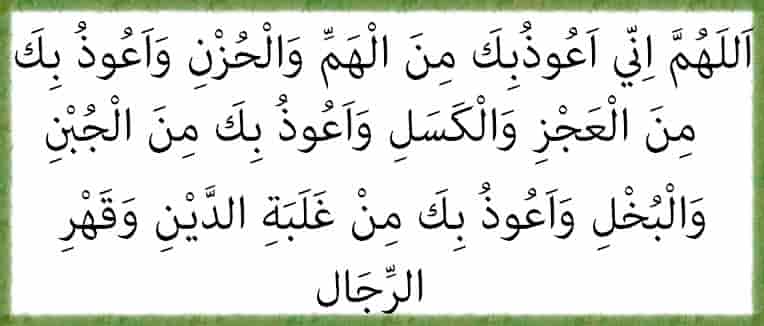 اَللَهُمَّ اِنِّي اَعُوذُبِكَ مِنَ الْهَمِّ وَالْحُزْنِ وَاَعُوذُ بِكَ
مِنَ الْعَجْزِ وَالْكَسَلِ وَاَعُوذُ بِكَ مِنَ الْجُبْنِ
وَالْبُخْلِ وَاَعُوذُ بِكَ مِنْ غَلَبَةِ الدَّيْنِ وَقَهْرِ
الرِّجَال